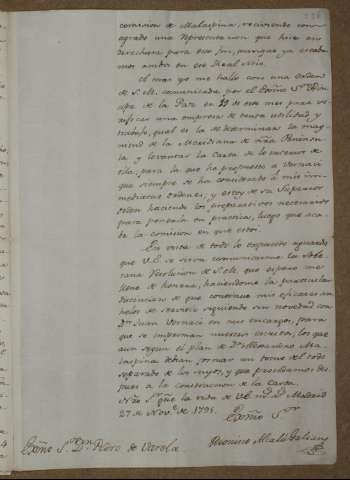 comision de Malaspina, reciviendo con
agrado una representacion que hice en
derechura para este fin, aunque ya estaba
mos ambos en ese Real Sitio.
El caso yo me hallo con una orden
de S. M. comunicada por el Exmo Sor Prin
cipe de la Paz en 23 de este mes para ve
rificar una empresa de tanta utilidad, y
trabajo, qual es la de determinar la mag
nitud de la Meridiana de nra Peninsu
la y levantar la Carta de lo interior de
ella, para la que he propuesto a Vernaci
que siempre se ha considerado á mis in
mediatas ordenes, y estoy de su Superior
orden haciendo los preparativos necesarios
para ponerla en practica, luego que aca
be la comision en que estoi.
En vista de todo lo expuesto aguardo
que V. E. se sirva comunicarme la Sobe
rana Resolucion de S. M. que espero me
llene de honores, haciendome la particular
distincion de que continue mis eficaces an
helos de servirlo siguiendo sin novedad con
Dn Juan Vernaci en mis encargos, para
que se impriman nuestras tareas, los que
aun segun el plan de Dn Alexandro Ma
laspina debian formar un tomo del todo
separado de los suyos, y que procedamos des
pues a la construccion de la Carta.
Nro Sr gue la vida de V. E. ms as Madrid
27 de Novre de 1795.
Exmo Sor
Dionisio Alcalá Galiano
Exmo Sor Dn Pedro de Varela